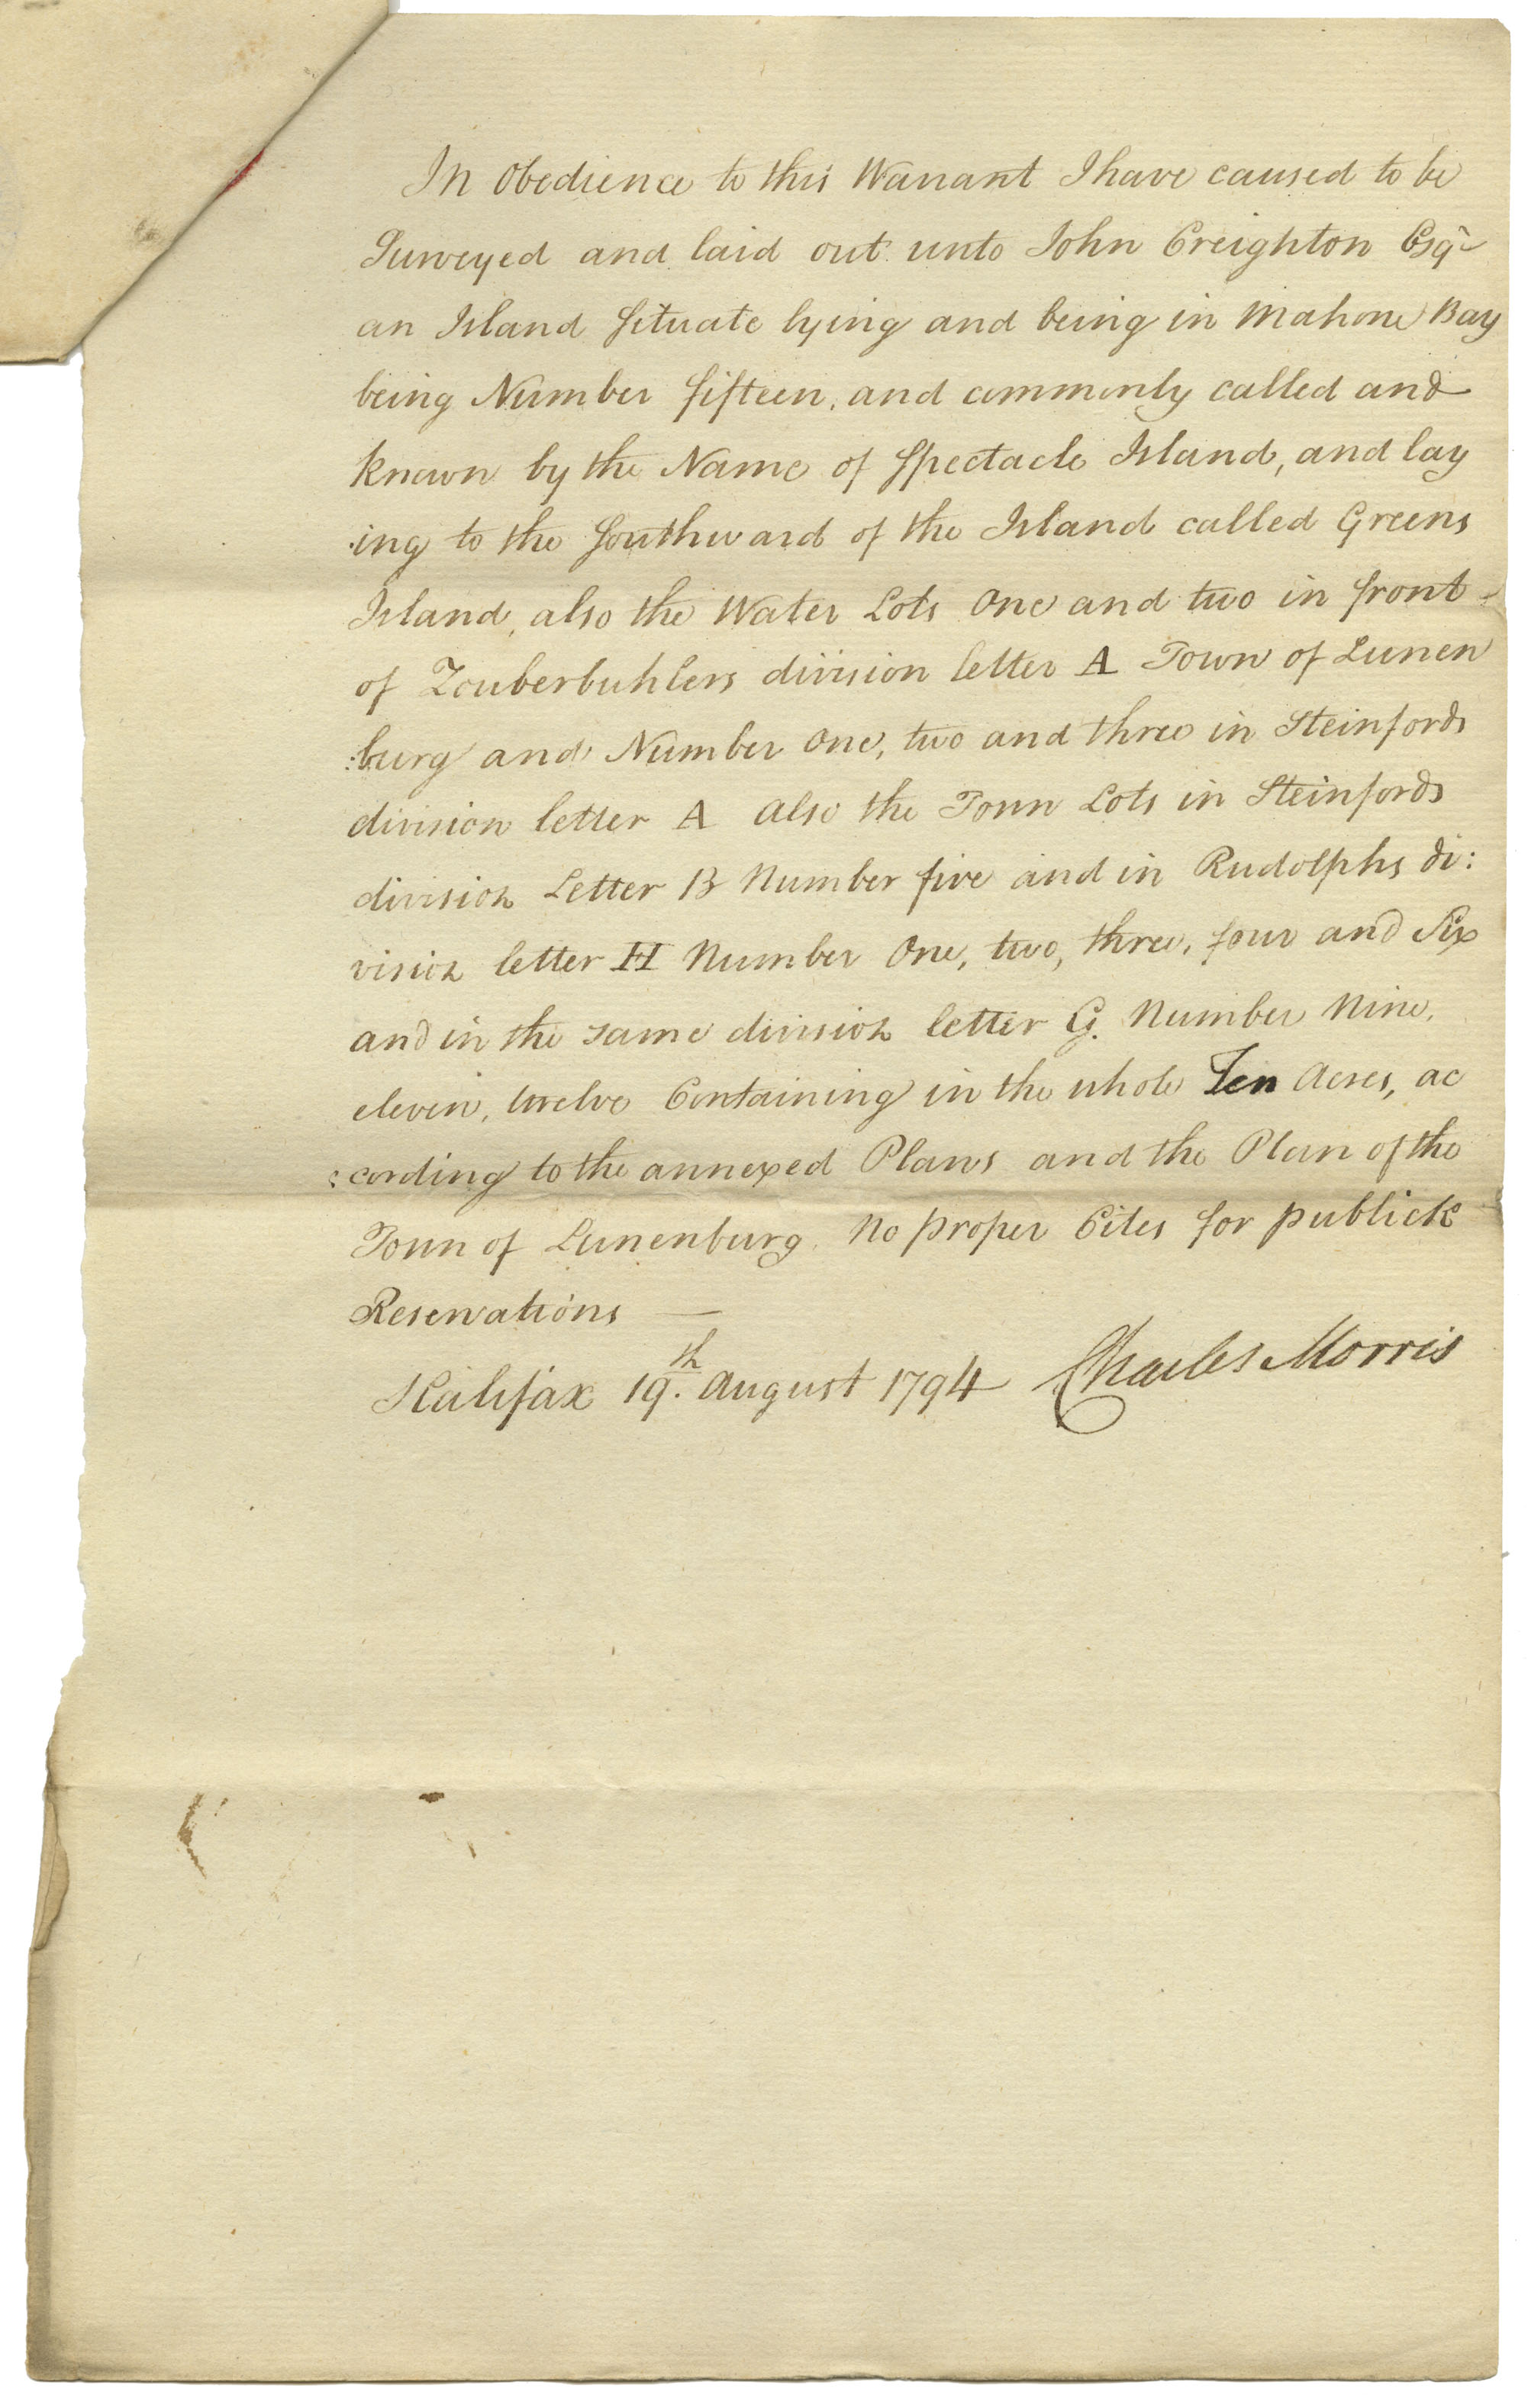 In Obedience to this Warrant I have caused to be
Surveyed and laid out unto John Creighton Esqr
an Island Situate lying and being in Mahone Bay
being Number fifteen, and commonly called and
known by the Name of Spectacle Island, and lay
ing to the Southward of the Island called Greens
Island, also the Water Lots One and two in front
of Zouberbuhlers division letter A Town of Lunen
:burg and Number One, two and three in Steinfords
division letter A also the Town Lots in Steinfords
division Letter B Number five and in Rudolphs di:
vision letter H Number One, two, three, four and Six
and in the same division letter G. Number Nine,
eleven, twelve Containing in the whole Ten Acres, ac
:cording to the annexed Plans and the Plan of the
Town of Lunenburg. No proper Cites for publick
Reservations —
Halifax 19th. August 1794 Charles Morris